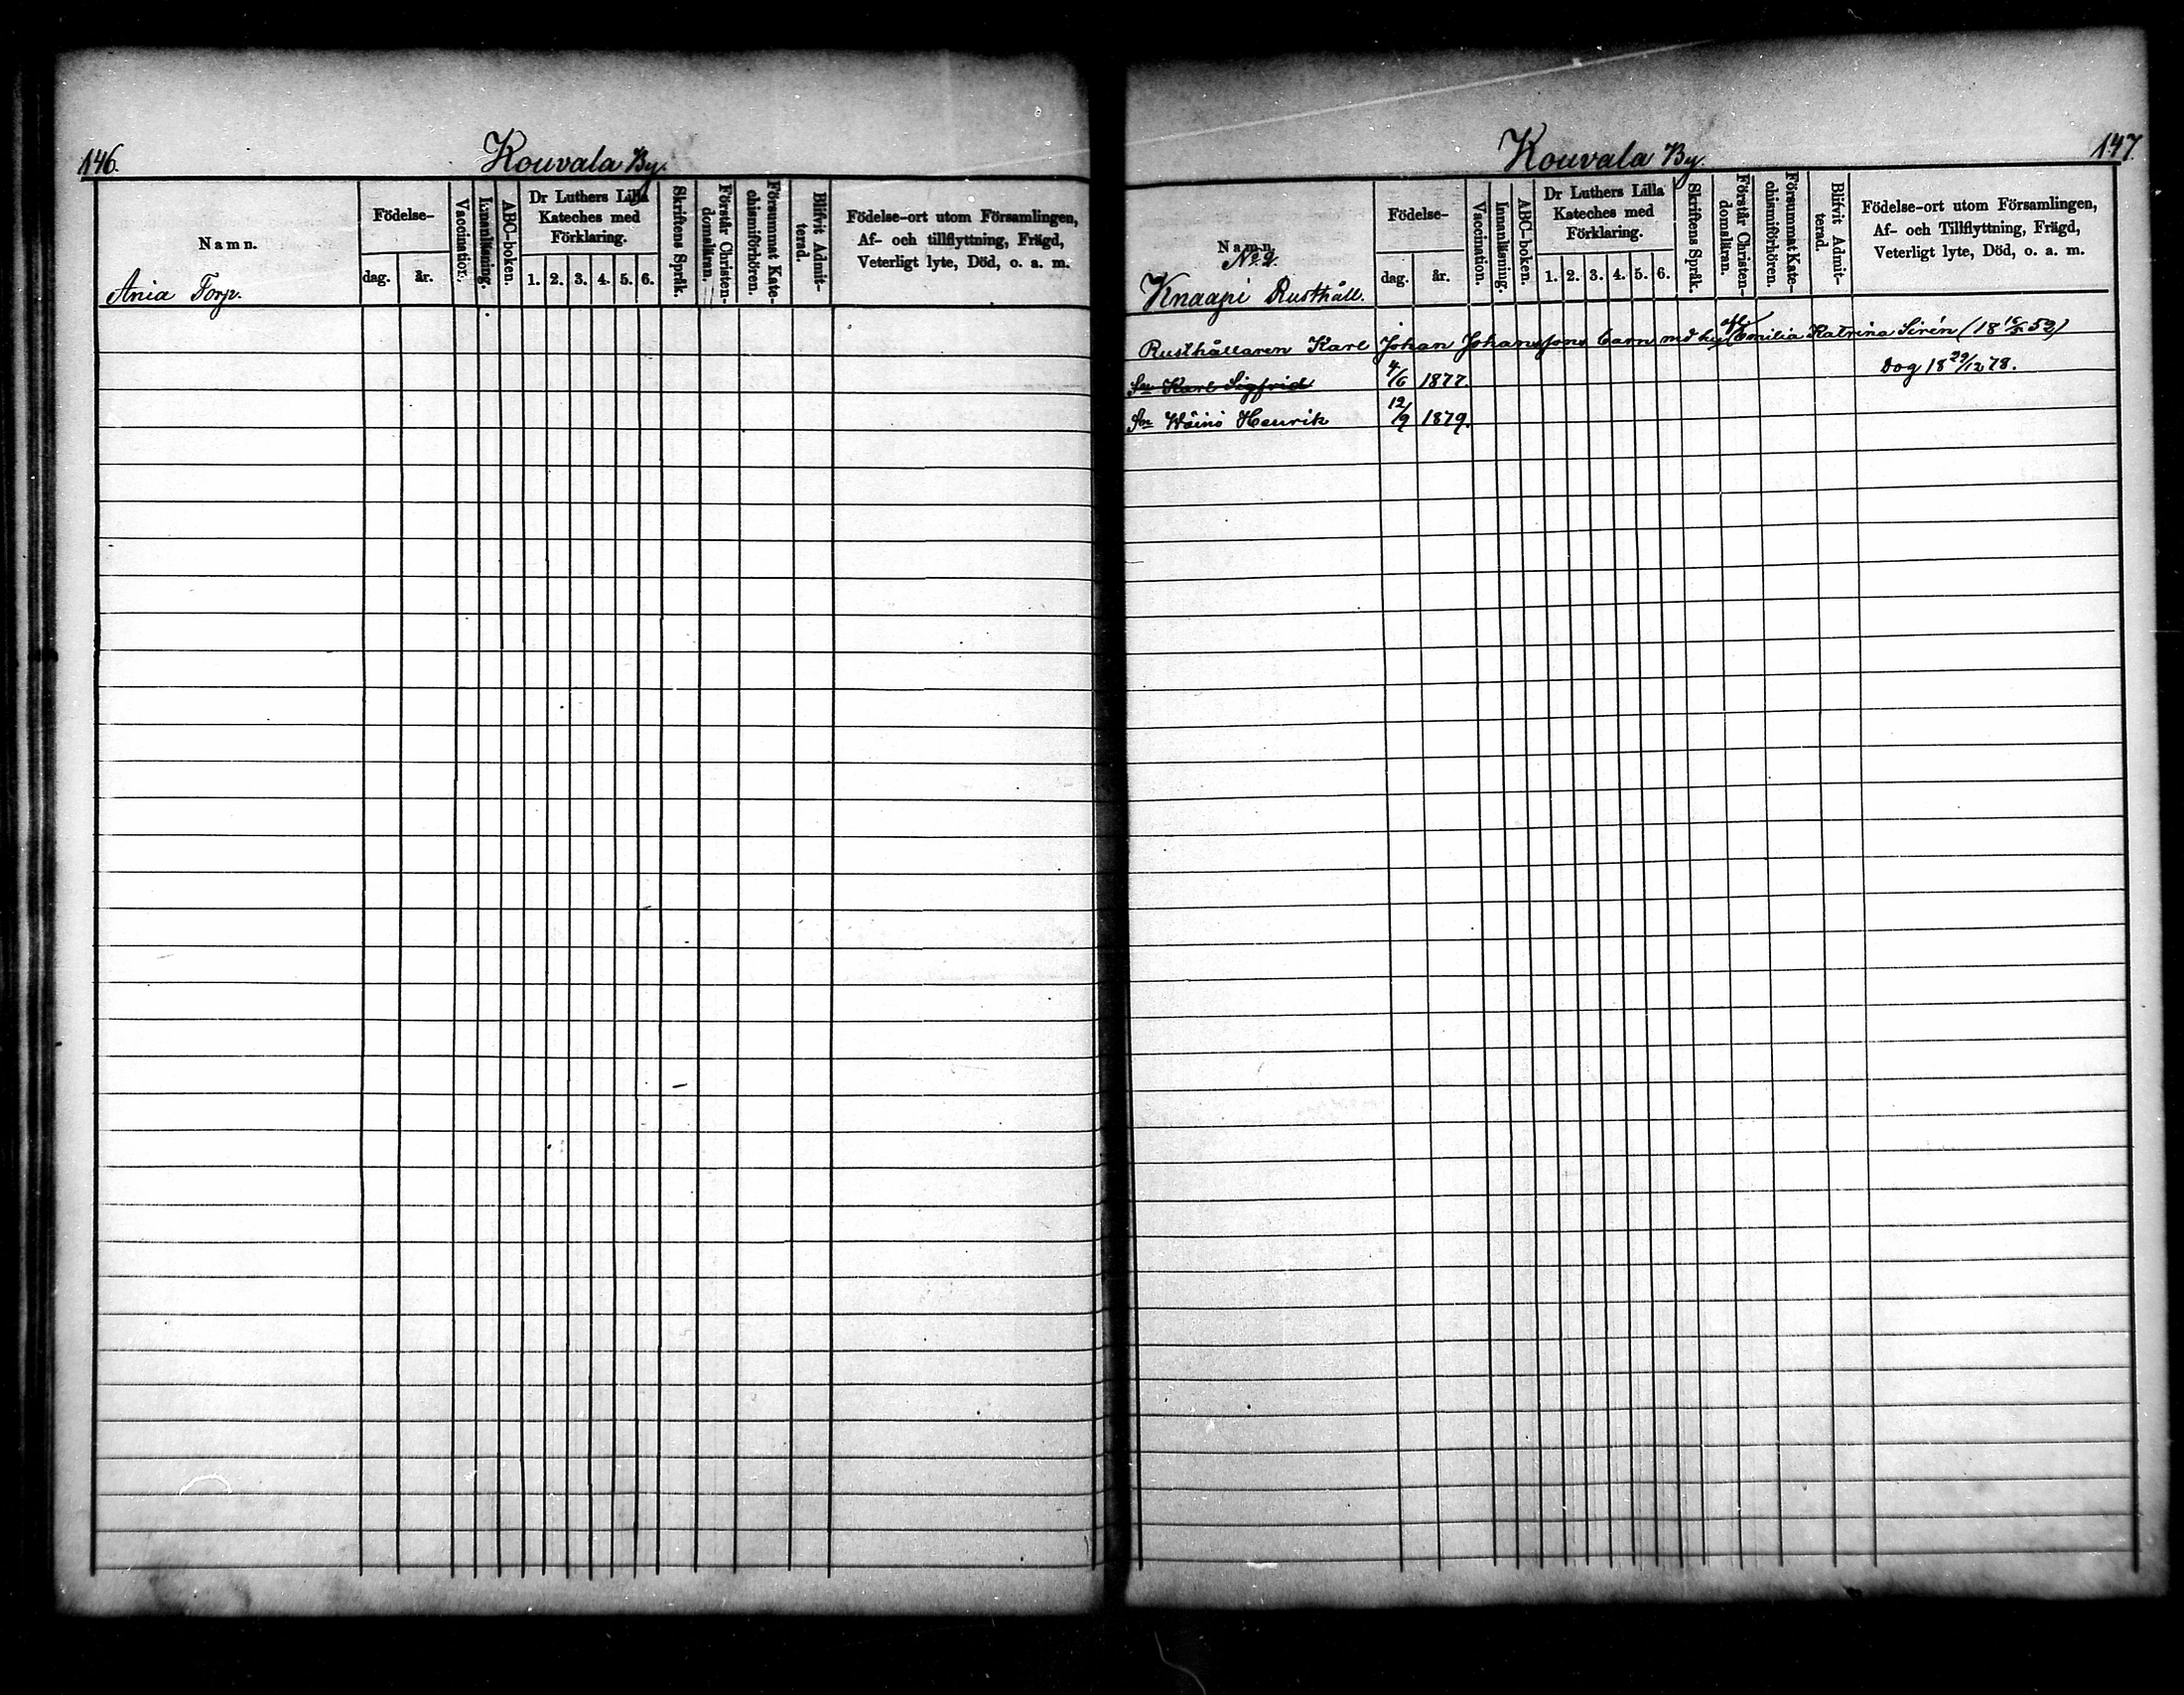 146.
Kouvala By.
Namn.
Födelse-
dag.
år.
Vaccination.
Innanläsning.
ABC-boken.
Dr Luthers Lilla
Kateches med
Förklaring.
1. 2. 3. 4. 5. 6.
Skriftens Språk.
Förstår Christen-
domsläran.
Försummat Kate-
chismiförhören.
Blifvit Admit-
terad.
Födelse-ort utom Församlingen,
Af- och tillflyttning, Frägd,
Veterligt lyte, Död, o. a. m.
Ania Torp.
147.
Kouvala By.
Namn.
No 2.
Knaapi Rusthåll.
Födelse-
dag.
år.
Vaccination.
Innanläsning.
ABC-boken.
Dr Luthers Lilla
Kateches med
Förklaring.
1. 2. 3. 4. 5. 6.
Skriftens Språk.
Förstår Christen-
domsläran.
Försummat Kate-
chismiförhören.
Blifvit Admit-
terad.
Födelse-ort utom Församlingen,
Af- och Tillflyttning, Frägd,
Veterligt lyte, Död, o. a. m.
Rusthållaren Karl Johan Johanssons barn med Emilia Katrina Sirén
Sn Karl Sigfrid 4/6 1877. Dog 18 29/12 78.
Sn Wäinö Henrik 12/9 1879.